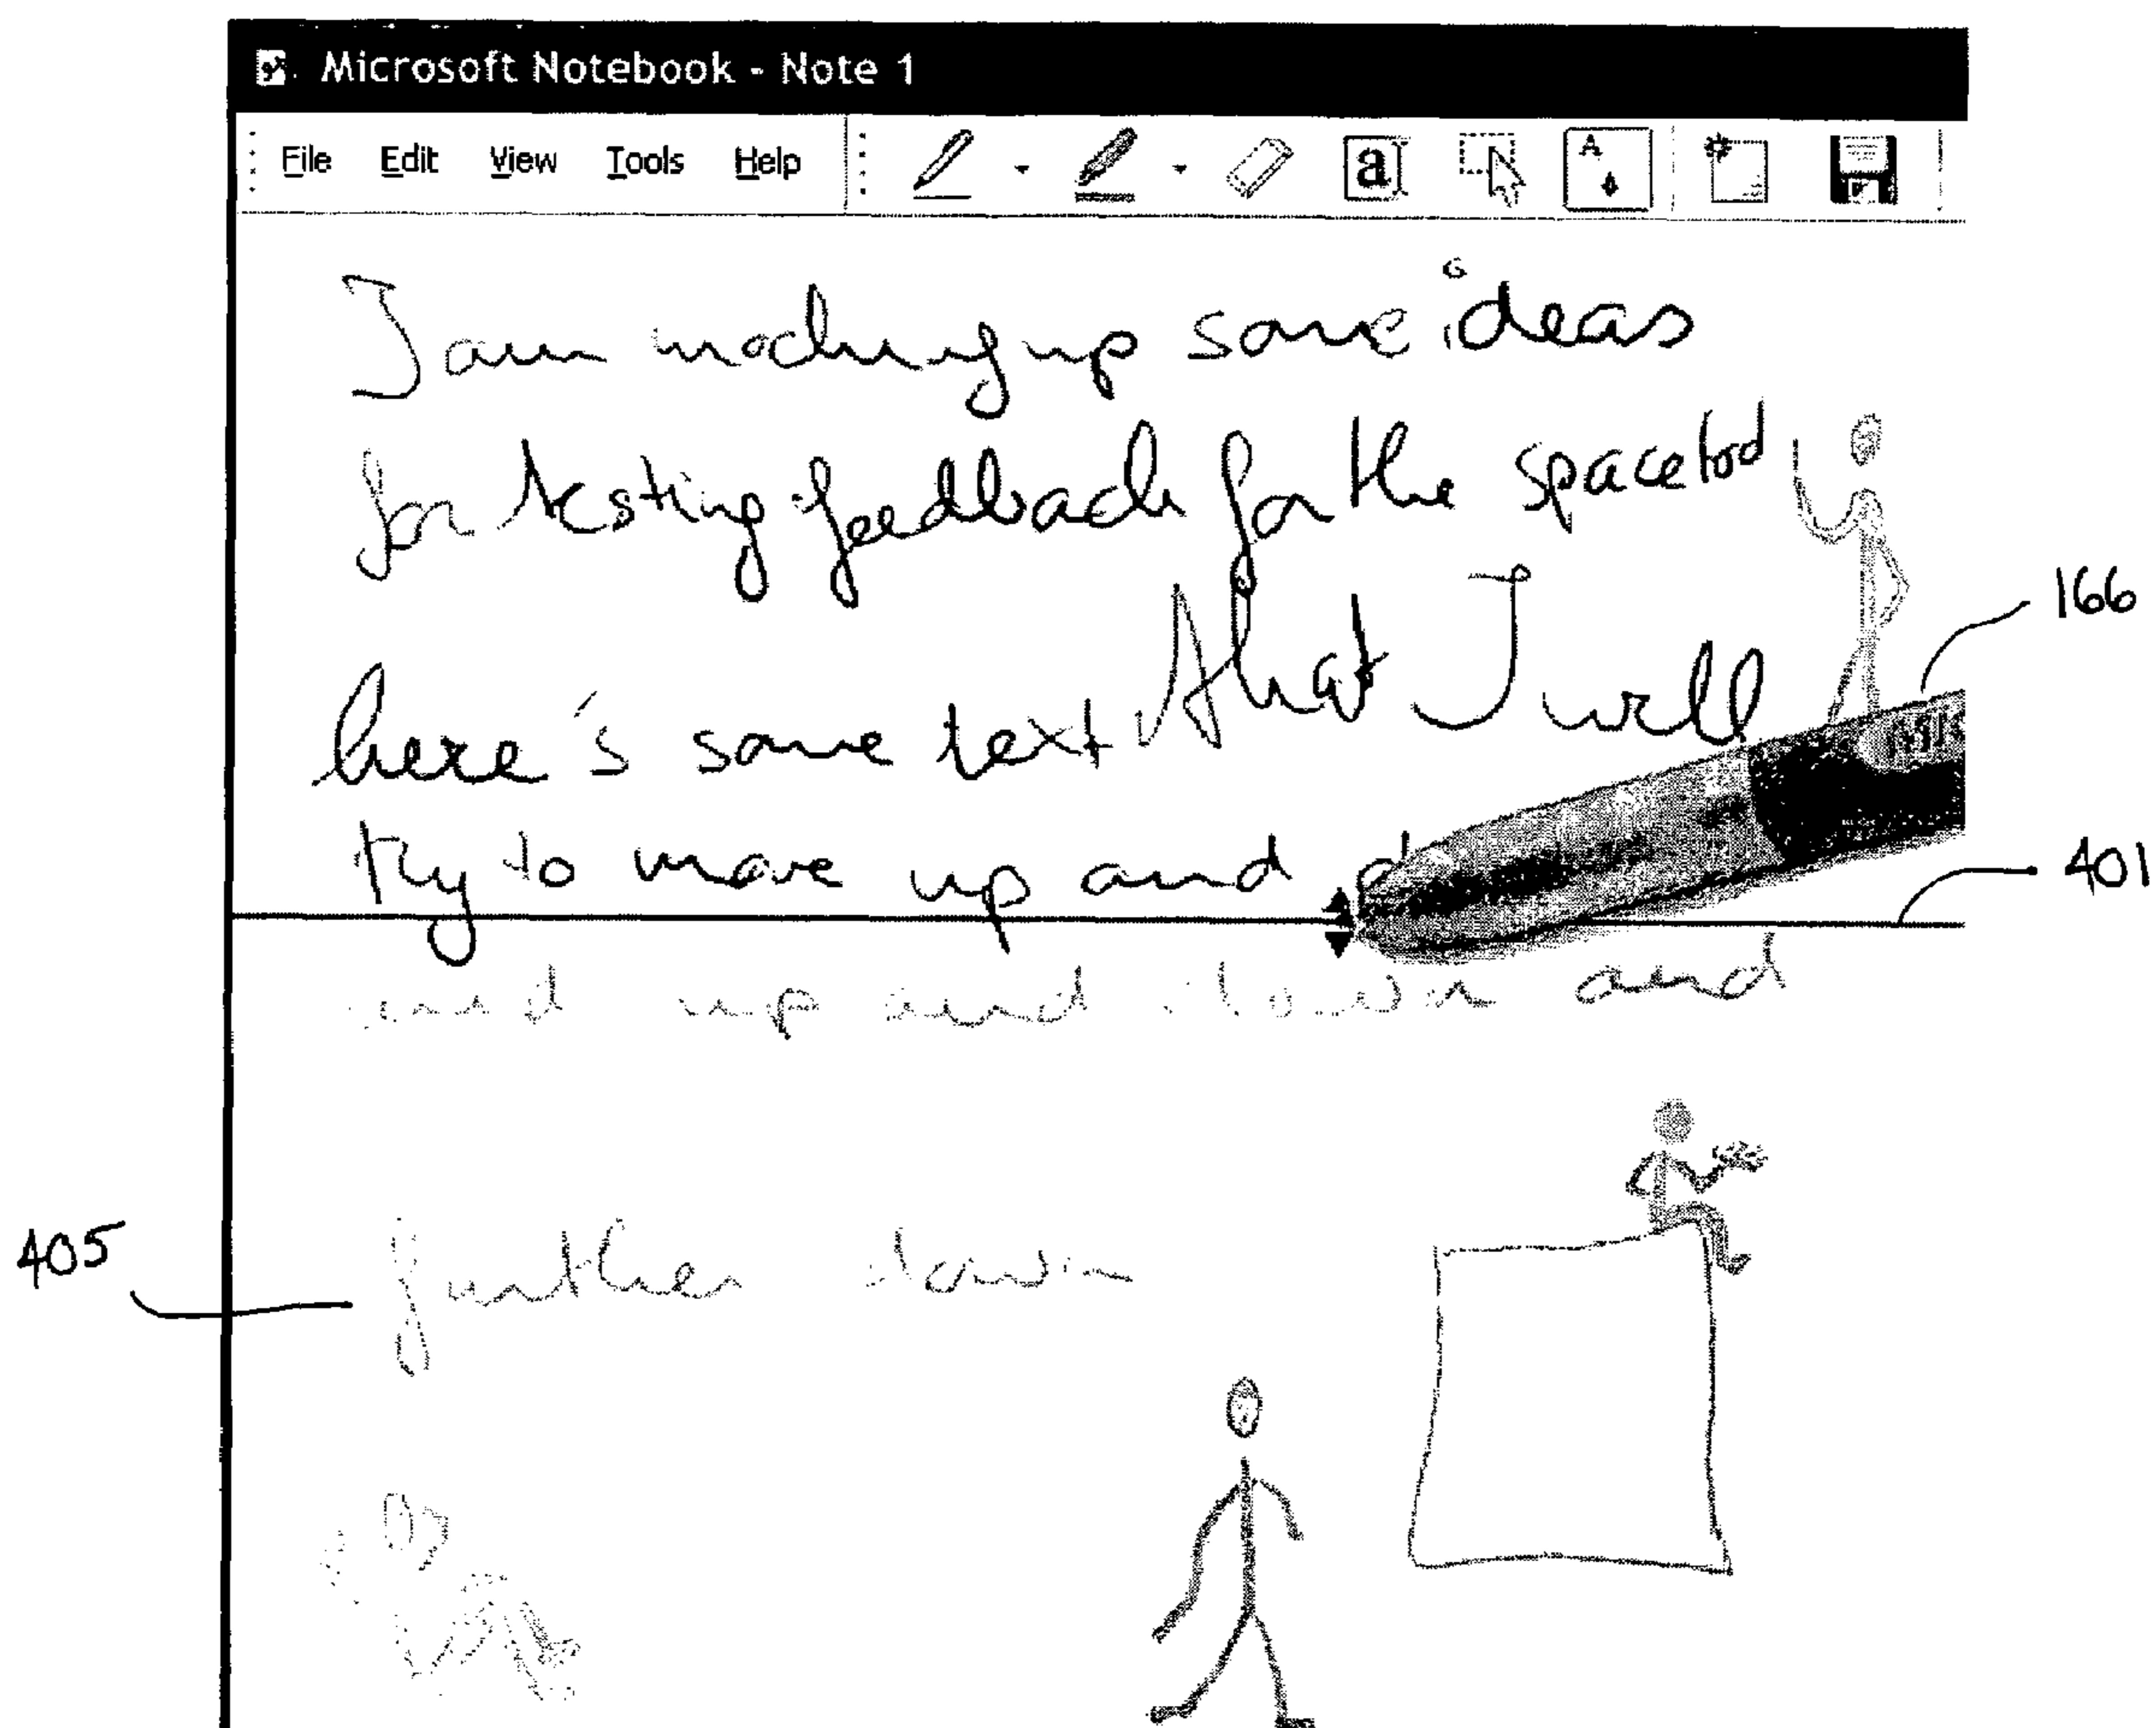 Microsoft Notebook - Note 1
File Edit View Tools Help
a
A
I am mocking up some ideas
for testing feedback for the spacetool
166
here's some text that I will
try to move up and d
401
and up and down and
405
further down